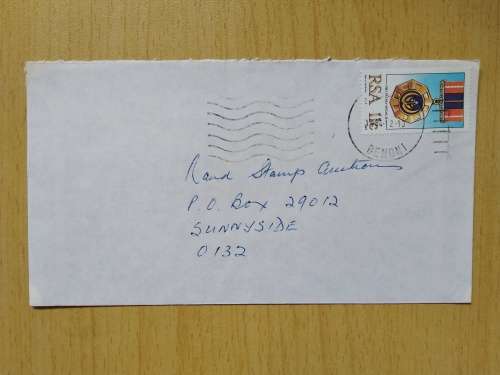 RSA 11c
BENONI
Rand Stamps Auctions
P.O. Box 29012
SUNNYSIDE
0132